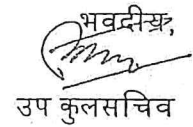 भवदीय,
उप कुलसचिव